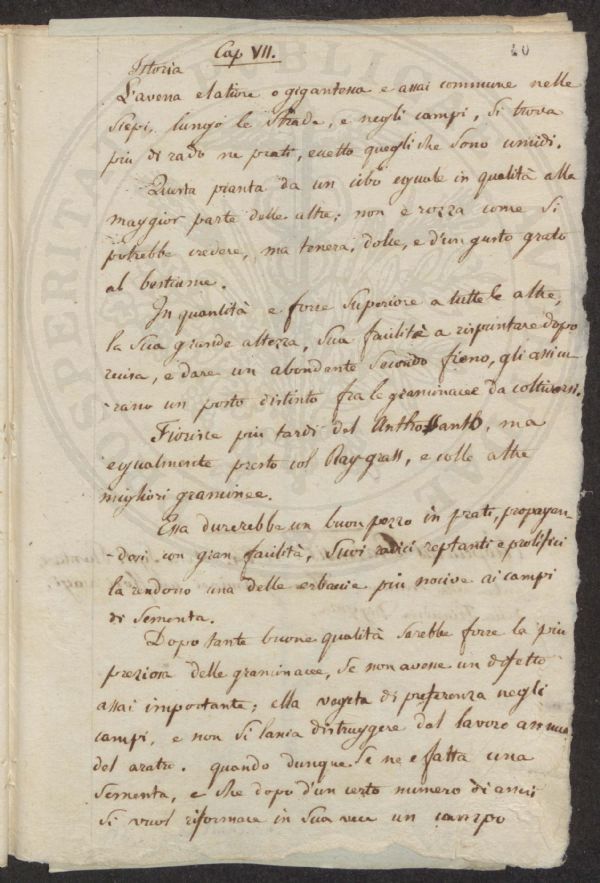 Cap VII.
40
Istoria
L'avena elatiore o gigantesca e assai commune nelle
siepi, lungo le strade, e negli campi, si trova
più di rado ne prati, eccetto quegli che sono umidi.
Questa pianta da un cibo eguale in qualità alla
maggior parte delle altre; non è rozza come si
potrebbe credere, ma tenera, dolce, e d'un gusto grato
al bestiame.
In quantità e forse superiore a tutte le altre,
la sua grande altezza, sua facilità a rispuntare dopo
recisa, e dare un abondente secondo fieno, gli assicu
-rano un posto distinto fra le graminacee da coltivarsi.
Fiorisce più tardi del Anthossanto, ma
egualmente presto col Ray-grass, e colle altre
migliori graminee.
Essa durerebbe un buon pezzo in prati, propagan-
-dosi con gran facilità, suoi radici reptanti e prolifici
la rendono una delle erbacie più nocive ai campi
di sementa.
Dopo tante buone qualità sarebbe forse la più
preziosa delle graminacee, se non avesse un difetto
assai importante; ella vegeta di preferenza negli
campi, e non si lascia distruggere dal lavoro annuo
del aratro. quando dunque se ne e fatta una
sementa, e che dopo d'un certo numero di anni
si vuol riformare in sua vece un campo